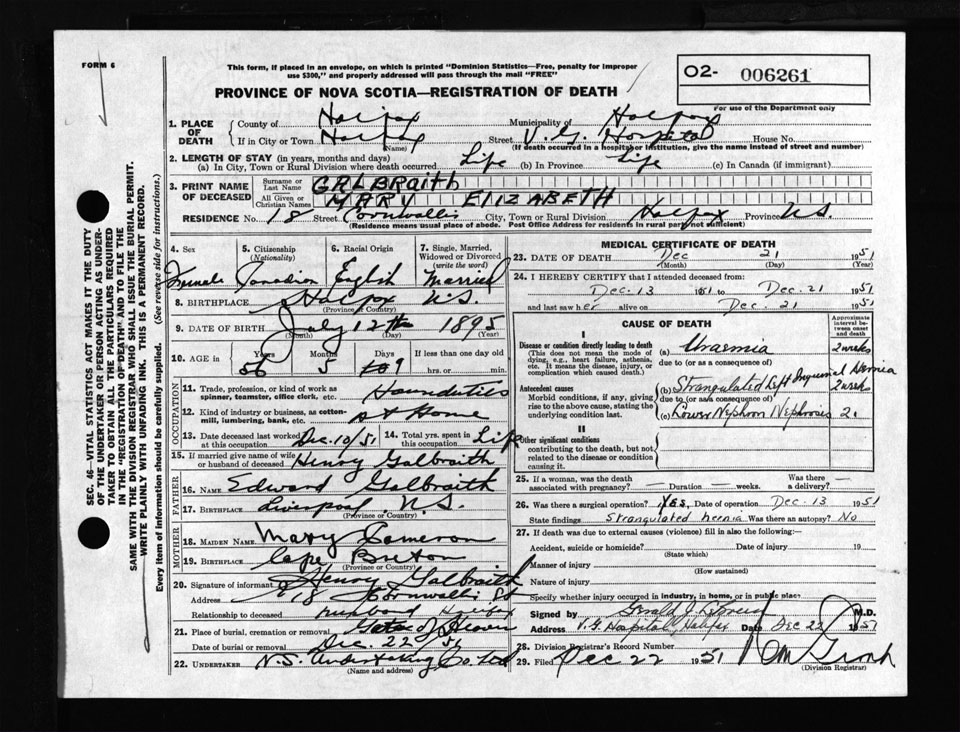 FORM 6
This form, if placed in an envelope, on which is printed "Dominion Statistics—Free, penalty for improper
use $300," and properly addressed will pass through the mail "FREE"
PROVINCE OF NOVA SCOTIA—REGISTRATION OF DEATH
O2- 006261
For use of the Department only
1. PLACE OF DEATH
County of Halifax Municipality of Halifax
If in City or Town Halifax Street V.G. Hospital House No.
(Name) (If death occurred in a hospital or institution, give the name instead of street and number)
2. LENGTH OF STAY (in years, months and days)
(a) In City, Town or Rural Division where death occurred Life (b) In Province Life (c) In Canada (if immigrant)
3. PRINT NAME OF DECEASED
Surname or Last Name GALBRAITH
All Given or Christian Names MARY ELIZABETH
RESIDENCE No. 18 Street Cornwallis City, Town or Rural Division Halifax Province N.S.
(Residence means usual place of abode. Post Office Address for residents in rural part not sufficient)
4. Sex Female
5. Citizenship (Nationality) Canadian
6. Racial Origin English
7. Single, Married, Widowed or Divorced (write the word) Married
8. BIRTHPLACE Halifax N.S.
(Province or Country)
9. DATE OF BIRTH July 12th 1895
(Month) (Day) (Year)
10. AGE in Years Months Days If less than one day old
56 5 9 hrs. or min.
OCCUPATION
11. Trade, profession, or kind of work as
spinner, teamster, office clerk, etc. Houseduties
12. Kind of industry or business, as cotton-
mill, lumbering, bank, etc. at Home
13. Date deceased last worked at this occupation Dec. 10/51 14. Total yrs. spent in this occupation Life
15. If married give name of wife
or husband of deceased Henry Galbraith
FATHER
16. NAME Edward Galbraith
17. BIRTHPLACE Liverpool N.S.
(Province or Country)
MOTHER
18. MAIDEN NAME Mary Cameron
19. BIRTHPLACE Cape Breton
(Province or Country)
20. Signature of informant Henry Galbraith
Address 18 Cornwallis St
Relationship to deceased husband Halifax
21. Place of burial, cremation or removal Gates of Heaven
Date of burial or removal Dec. 22 51
22. UNDERTAKER N.S. Undertaking Co. Ltd
(Name and address)
MEDICAL CERTIFICATE OF DEATH
23. DATE OF DEATH Dec 21 1951
(Month) (Day) (Year)
24. I HEREBY CERTIFY that I attended deceased from
Dec. 13 1951 to Dec. 21 1951
and last saw her alive on Dec. 21 1951
CAUSE OF DEATH
Approximate interval between onset and death
I
Disease or condition directly leading to death
(This does not mean the mode of
dying, e.g., heart failure, asthenia,
etc. It means the disease, injury, or
complication which caused death.)
(a) Uraemia 2 weeks
due to (or as a consequence of)
Antecedent causes
Morbid conditions, if any, giving
rise to the above cause, stating the
underlying condition last.
(b) Strangulated Left Inguinal Hernia 2 weeks
due to (or as a consequence of)
(c) Lower Nephron Nephrosis 2
II
Other significant conditions
contributing to the death, but not
related to the disease or condition
causing it.
25. If a woman, was the death
associated with pregnancy? — Duration — weeks. Was there a delivery? —
26. Was there a surgical operation? YES. Date of operation Dec. 13 1951
State findings Strangulated hernia Was there an autopsy? No
27. If death was due to external causes (violence) fill in also the following:
Accident, suicide or homicide? Date of injury 19
(State which)
Manner of injury
(How sustained)
Nature of injury
Specify whether injury occurred in industry, in home, or in public place
Signed by Gerald M.D.
Address V.G. Hospital, Halifax Date Dec 22 1951
28. Division Registrar's Record Number
29. Filed Dec 22 1951
(Division Registrar)
SEC. 46—VITAL STATISTICS ACT MAKES IT THE DUTY
OF THE UNDERTAKER OR PERSON ACTING AS UNDER-
TAKER TO OBTAIN ALL THE PARTICULARS REQUIRED
IN THE "REGISTRATION OF DEATH" AND TO FILE THE
SAME WITH THE DIVISION REGISTRAR WHO SHALL ISSUE THE BURIAL PERMIT.
WRITE PLAINLY WITH UNFADING INK. THIS IS A PERMANENT RECORD.
Every item of information should be carefully supplied. (See reverse side for instructions.)